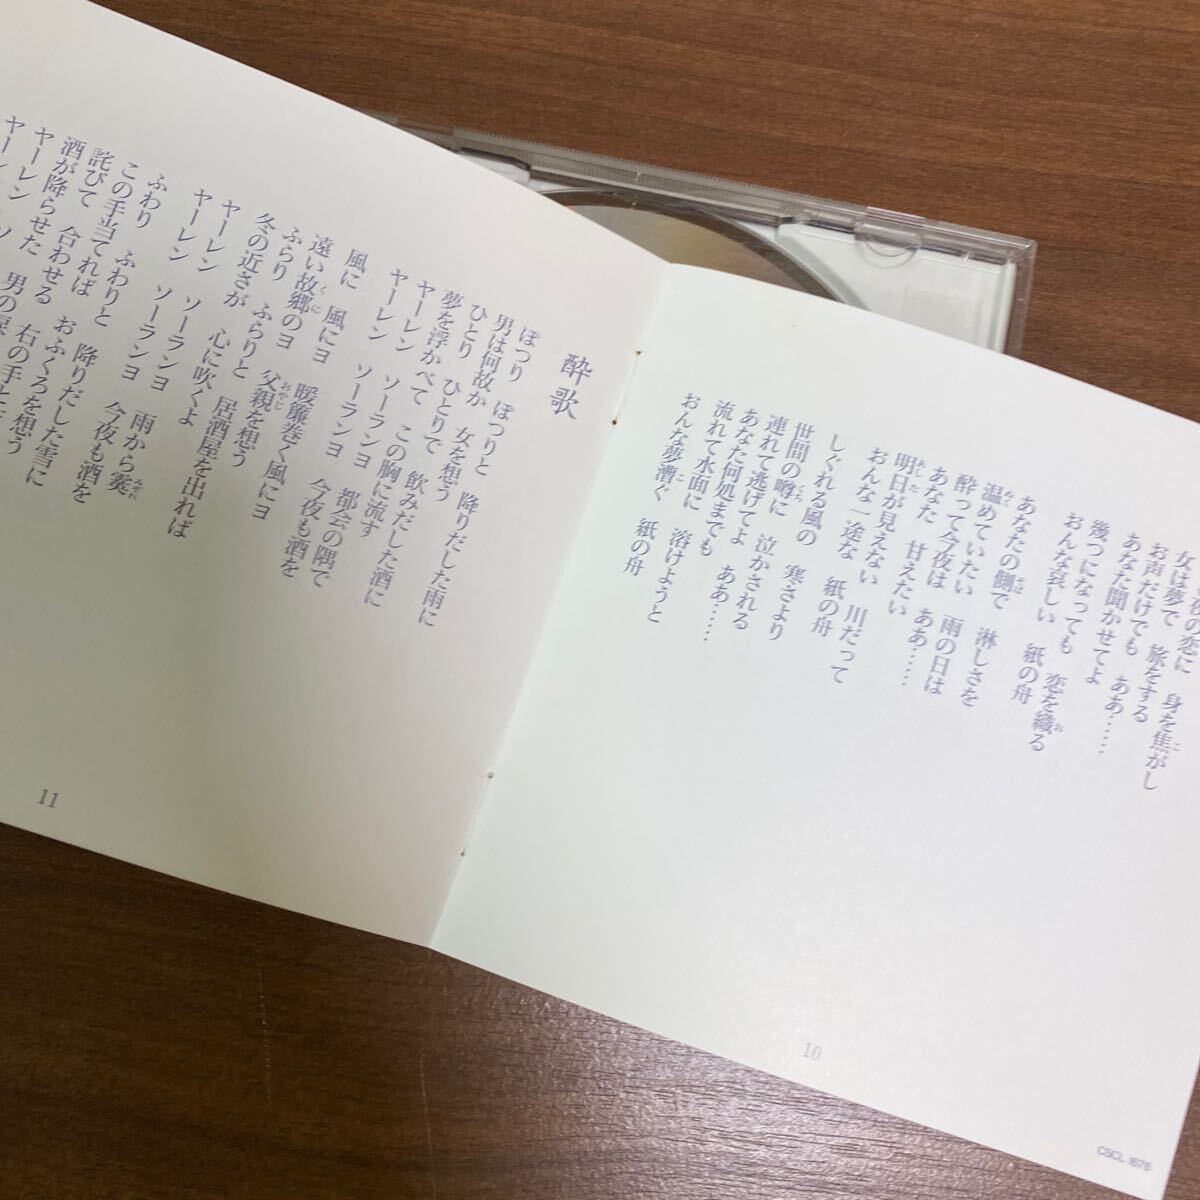 夜の恋に 身を焦がし
女は夢で 旅をする
お声だけでも ああ……
あなた聞かせてよ
幾つになっても 恋を織る
おんな哀しい 紙の舟
あなたの側で 淋しさを
温めていたい 雨の日は
酔って今夜は ああ……
あなた 甘えたい
明日が見えない 川だって
おんな一途な 紙の舟
しぐれる風の 寒さより
世間の噂に 泣かされる
連れて逃げてよ ああ……
あなた何処までも
流れて水面に 溶けようと
おんな夢漕ぐ 紙の舟
10
CSCL 1676
酔歌
ぽつり ぽつりと 降りだした雨に
男は何故か 女を想う
ひとり ひとりで 飲みだした酒に
夢を浮かべて この胸に流す
ヤーレン ソーランヨ 都会の隅で
ヤーレン ソーランヨ 今夜も酒を
風に 風にヨ 暖簾巻く風にヨ
遠い故郷のヨ 父親を想う
ふらり ふらりと 居酒屋を出れば
冬の近さが 心に吹くよ
ヤーレン ソーランヨ 雨から霙
ヤーレン ソーランヨ 今夜も酒を
ふわり ふわりと 降りだした雪に
この手当てれば おふくろを想う
詫びて 合わせる 右の手と
酒が降らせた 男の涙
ヤーレン ソ
ヤーレン
11